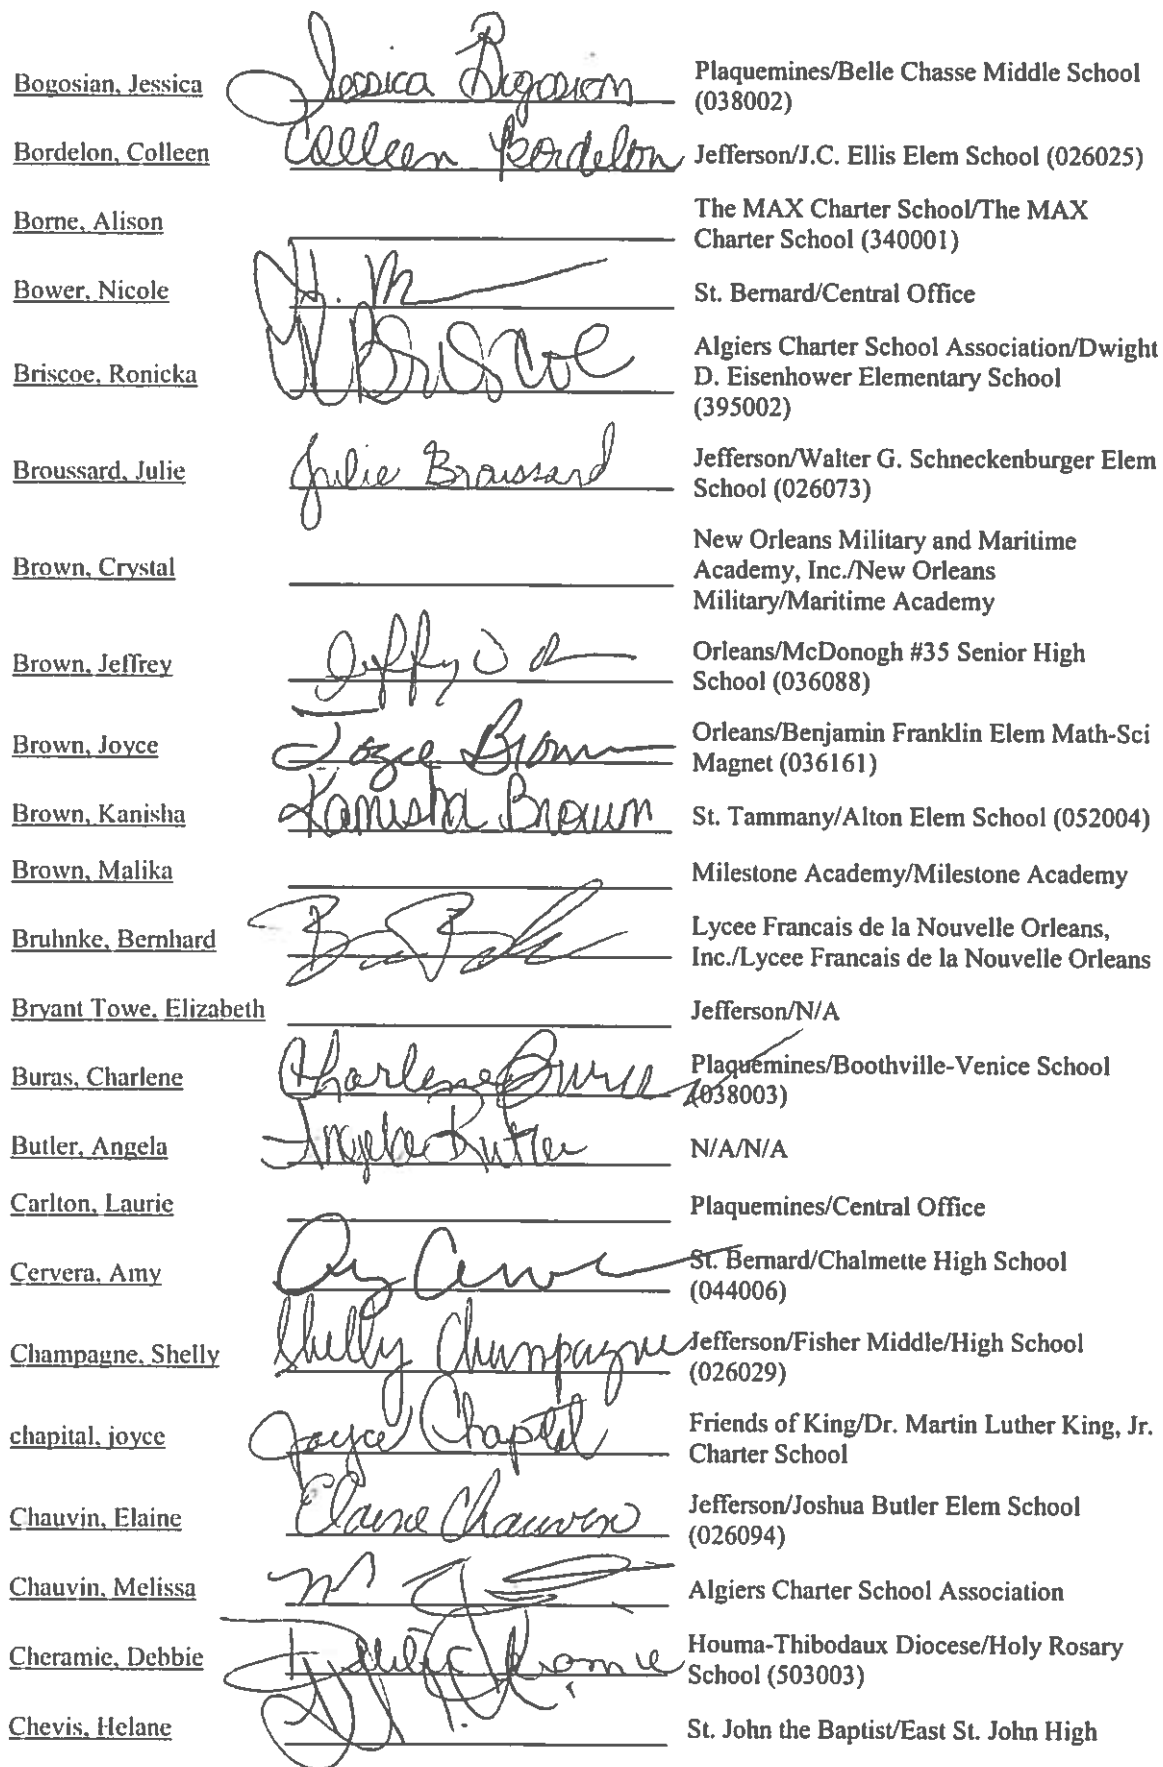 Bogosian, Jessica Jessica Bogosian Plaquemines/Belle Chasse Middle School
(038002)
Bordelon, Colleen Colleen Bordelon Jefferson/J.C. Ellis Elem School (026025)
Borne, Alison The MAX Charter School/The MAX
Charter School (340001)
Bower, Nicole St. Bernard/Central Office
Briscoe, Ronicka R Briscoe Algiers Charter School Association/Dwight
D. Eisenhower Elementary School
(395002)
Broussard, Julie Julie Broussard Jefferson/Walter G. Schneckenburger Elem
School (026073)
Brown, Crystal New Orleans Military and Maritime
Academy, Inc./New Orleans
Military/Maritime Academy
Brown, Jeffrey Orleans/McDonogh #35 Senior High
School (036088)
Brown, Joyce Joyce Brown Orleans/Benjamin Franklin Elem Math-Sci
Magnet (036161)
Brown, Kanisha Kanisha Brown St. Tammany/Alton Elem School (052004)
Brown, Malika Milestone Academy/Milestone Academy
Bruhnke, Bernhard Lycee Francais de la Nouvelle Orleans,
Inc./Lycee Francais de la Nouvelle Orleans
Bryant Towe, Elizabeth Jefferson/N/A
Buras, Charlene Charlene Buras Plaquemines/Boothville-Venice School
(038003)
Butler, Angela Angela Butler N/A/N/A
Carlton, Laurie Plaquemines/Central Office
Cervera, Amy Amy St. Bernard/Chalmette High School
(044006)
Champagne, Shelly Shelly Champagne Jefferson/Fisher Middle/High School
(026029)
chapital, joyce Joyce Chapital Friends of King/Dr. Martin Luther King, Jr.
Charter School
Chauvin, Elaine Elaine Chauvin Jefferson/Joshua Butler Elem School
(026094)
Chauvin, Melissa Algiers Charter School Association
Cheramie, Debbie Debbie Cheramie Houma-Thibodaux Diocese/Holy Rosary
School (503003)
Chevis, Helane St. John the Baptist/East St. John High